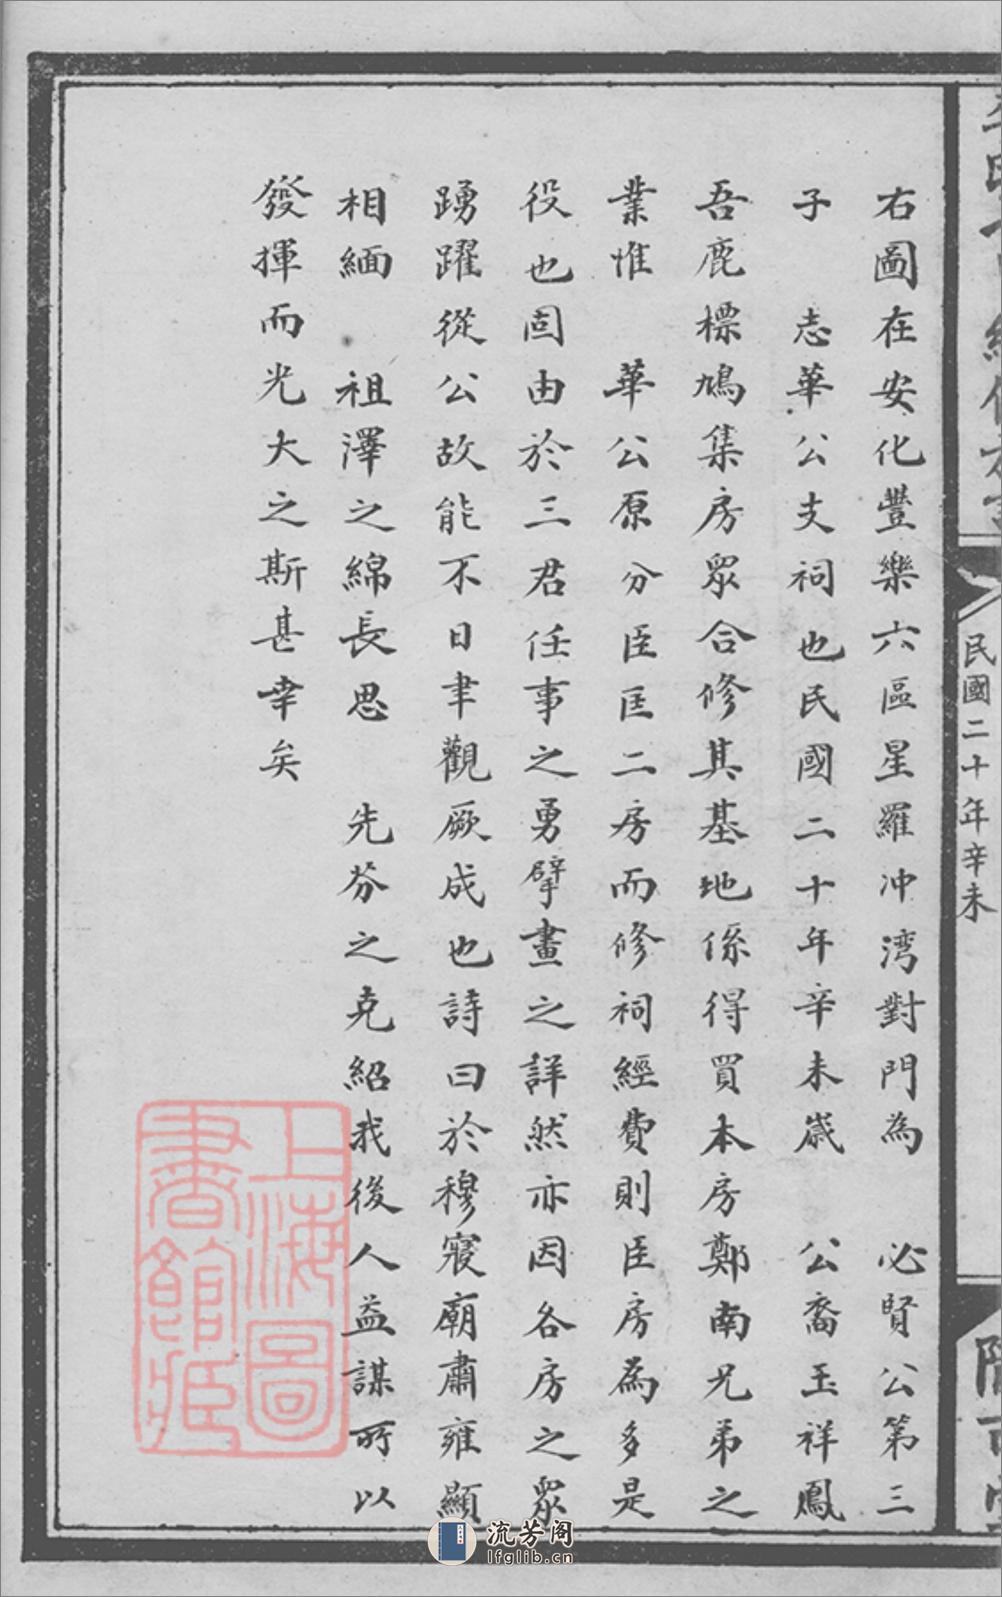 民國二十年辛未
右圖在安化豐樂六區星羅冲湾對門為 必賢公第三
子 志華公支祠也民國二十年辛未歲 公裔玉祥鳳
吾鹿標鳩集房眾合修其基地係得買本房鄭南兄弟之
業惟 華公原分臣匡二房而修祠經費則臣房為多是
役也固由於三君任事之勇擘畫之詳然亦因各房之眾
踴躍從公故能不日聿觀厥成也詩曰於穆寢廟肅雍顯
相緬 祖澤之綿長思 先芬之克紹我後人益謀所以
發揮而光大之斯甚幸矣
上海圖
書館藏
流芳阁
lfglib.cn